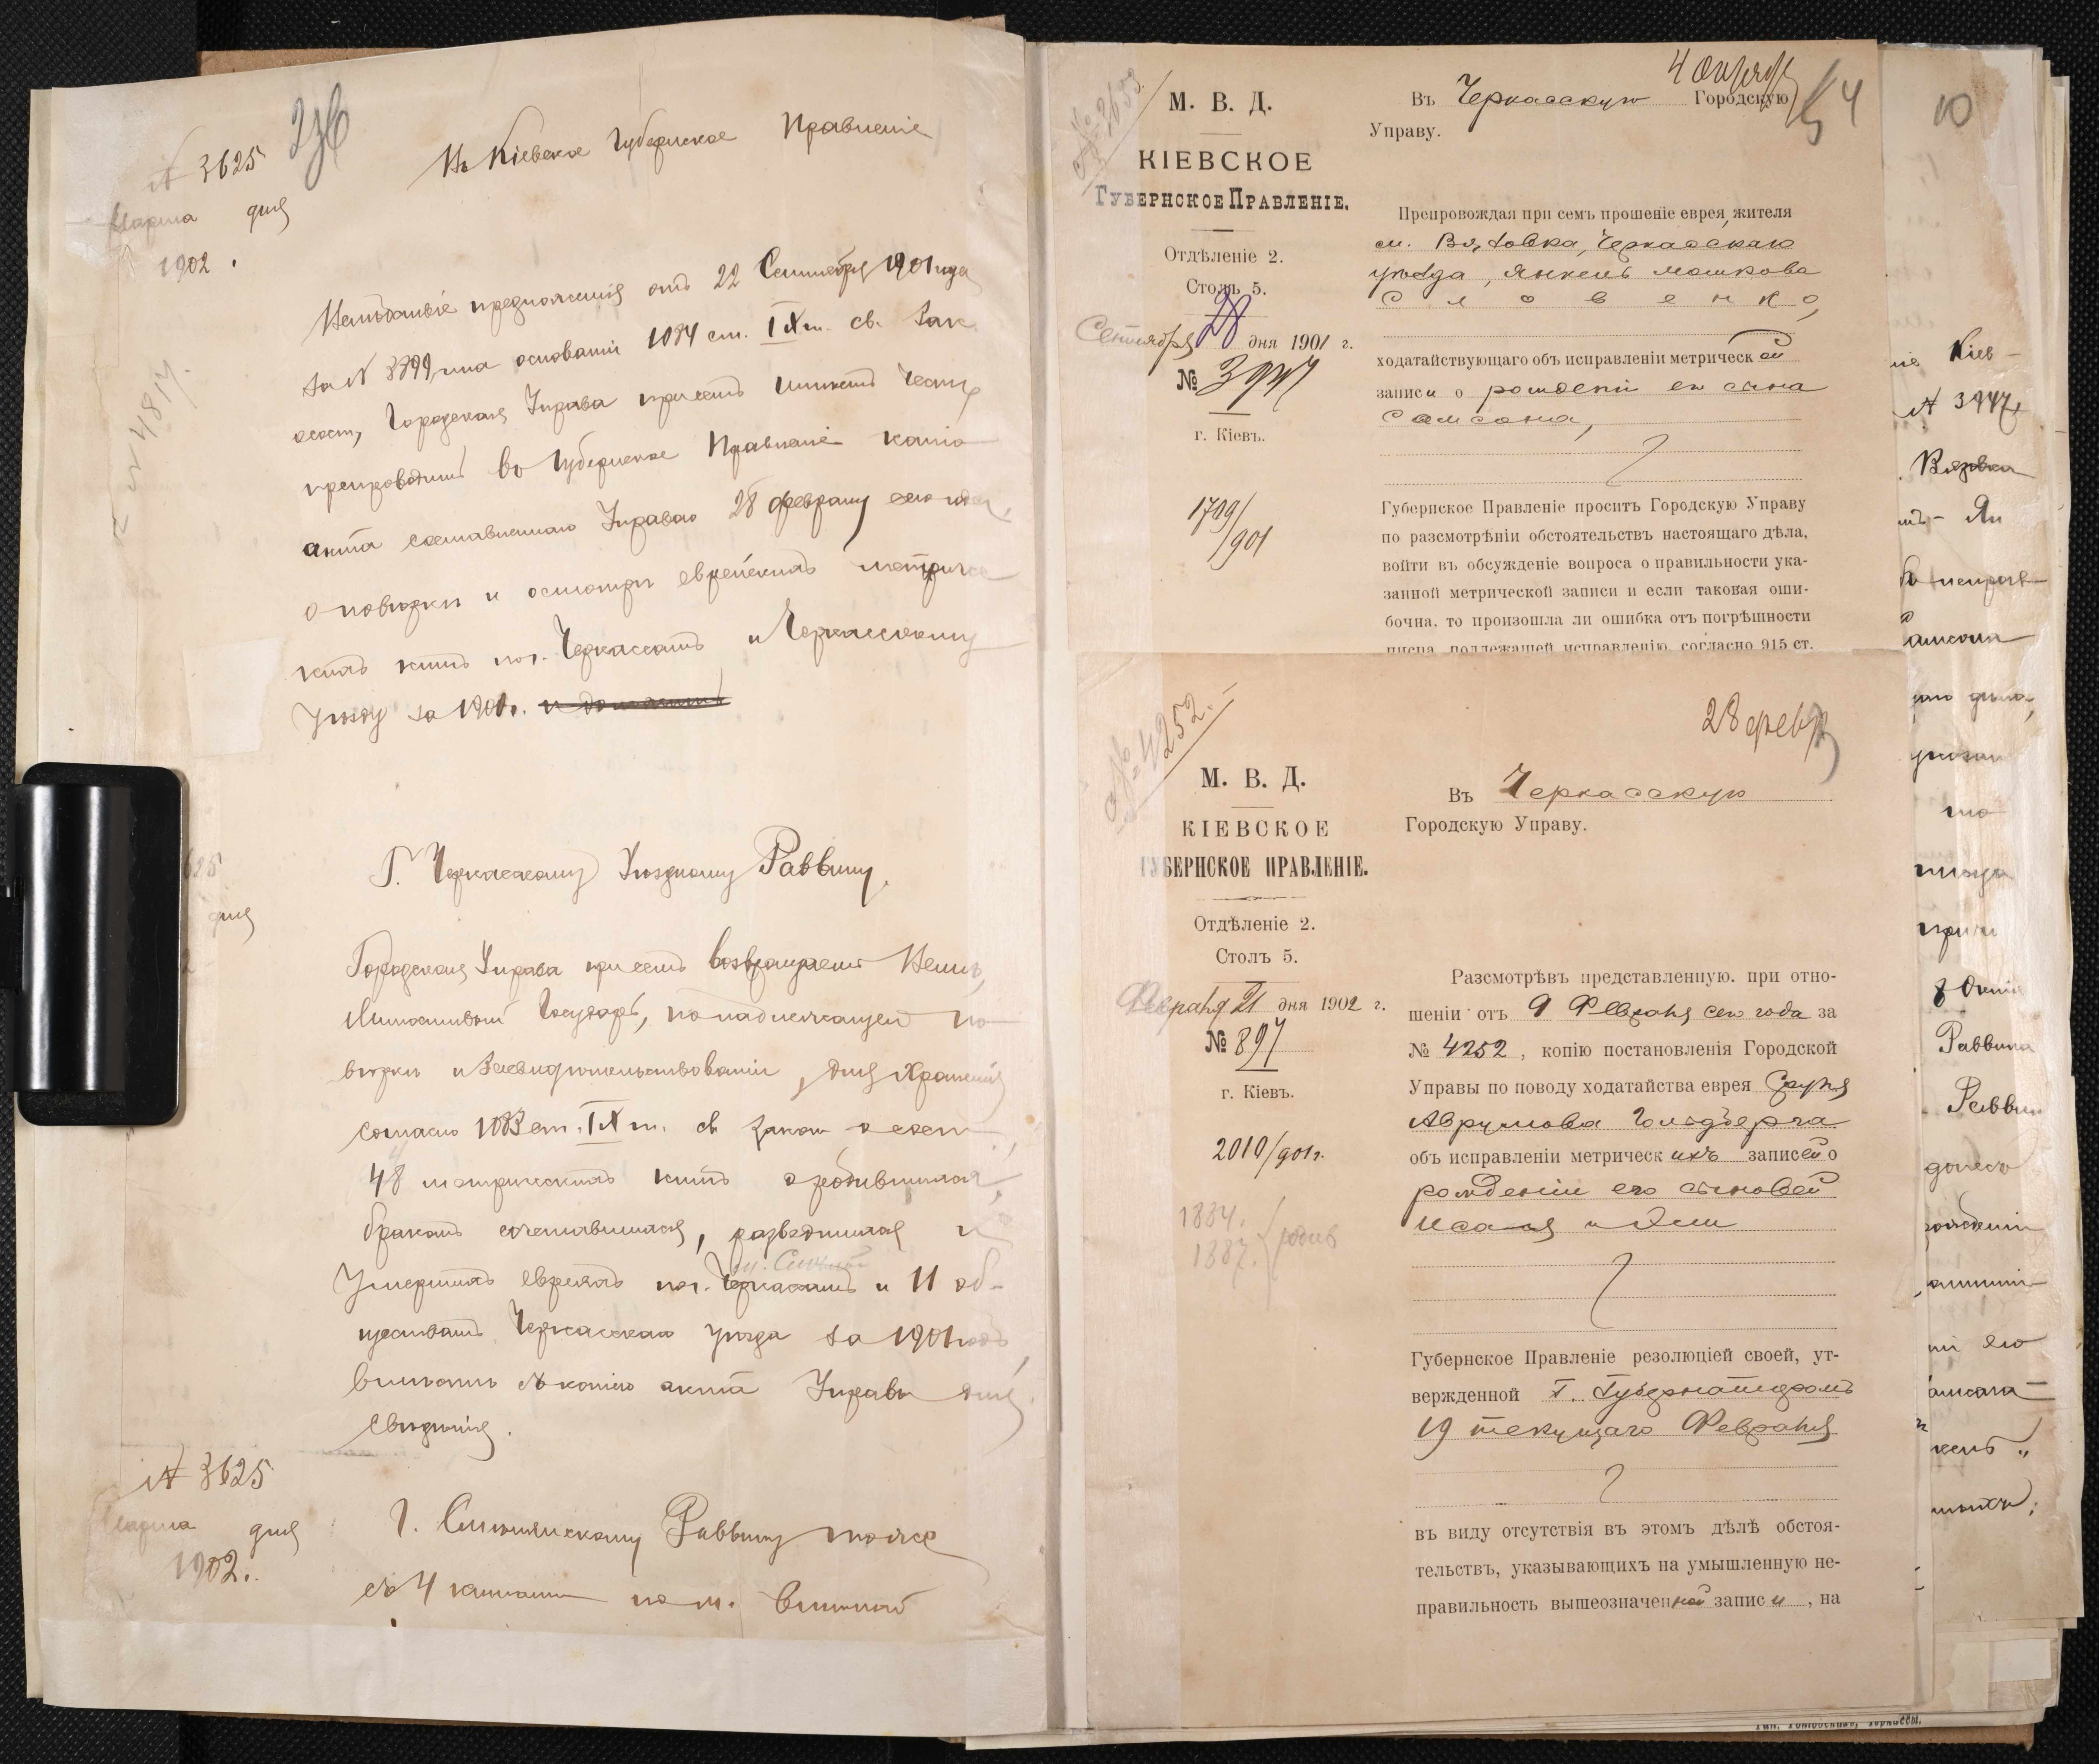 № 3625
Марта дня
1902 .
Въ Кіевское Губернское Правленіе
предложенія отъ 22 Сентября 1901 года
за № 3799, на основаніи 1084 ст. IX т. св. Зак.
о сост., Городская Управа при семъ имѣетъ честь
препроводить въ Губернское Правленіе копію
акта составленнаго Управою 28 февраля сего года
о повѣркѣ и осмотрѣ еврейскихъ метриче
кихъ книгъ по г. Черкассамъ и Черкасскому
уѣзду за 1901 г.
Г. Черкасскому Уѣздному Раввину.
Городская Управа при семъ возвращаетъ Вамъ,
Милостивый Государь, по надлежащей по
вѣркѣ и засвидѣтельствованіи, для храненія
согласно 1083 ст. IX т. св. закон о сост.,
48 метрическихъ книгъ о родившихся,
бракомъ сочетавшихся, разведшихся и
умершихъ евреяхъ по г. Черкассамъ и 11 об-
ществамъ Черкасскаго уѣзда за 1901 годъ,
вмѣстѣ съ копіею акта Управы для
свѣдѣнія.
№ 3625
Марта дня
1902.
Г. Смѣлянскому Раввину тоже
съ 4 книгами по м.
4 Октября
54
М. В. Д.
КІЕВСКОЕ
ГУБЕРНСКОЕ ПРАВЛЕНІЕ.
Отдѣленіе 2.
Столъ 5.
Сентября 28 дня 1901 г.
№ 3947
г. Кіевъ.
1709/901
Въ Черкасскую Городскую
Управу.
Препровождая при семъ прошеніе еврея, жителя
м. Вязовка, Черкасскаго
уѣзда, Янкель Мошкова
Словенко,
ходатайствующаго объ исправленіи метрической
записи о рожденіи его сына
Самсона,
Губернское Правленіе проситъ Городскую Управу
по разсмотрѣніи обстоятельствъ настоящаго дѣла,
войти въ обсужденіе вопроса о правильности ука-
занной метрической записи и если таковая оши-
бочна, то произошла ли ошибка отъ погрѣшности
писца, подлежащей исправленію, согласно 915 ст.
28 февр
М. В. Д.
КІЕВСКОЕ
ГУБЕРНСКОЕ ПРАВЛЕНІЕ.
Отдѣленіе 2.
Столъ 5.
Февраля 21 дня 1902 г.
№ 897
г. Кіевъ.
2010/901 г.
1884.
1887.
Въ Черкасскую
Городскую Управу.
Разсмотрѣвъ представленную. при отно-
шеніи отъ 9 Февраля сего года за
№ 4252, копію постановленія Городской
Управы по поводу ходатайства еврея Сруля
Аврумова Гольдберга
объ исправленіи метрическихъ записей о
рожденіи его сыновей
Губернское Правленіе резолюціей своей, ут-
вержденной Г. Губернаторомъ
19 текущаго Февраля
въ виду отсутствія въ этомъ дѣлѣ обстоя-
тельствъ, указывающихъ на умышленную не-
правильность вышеозначенной записи, на
10
Кіев-
№ 3947
Вязовка
Ян
Раввина
его